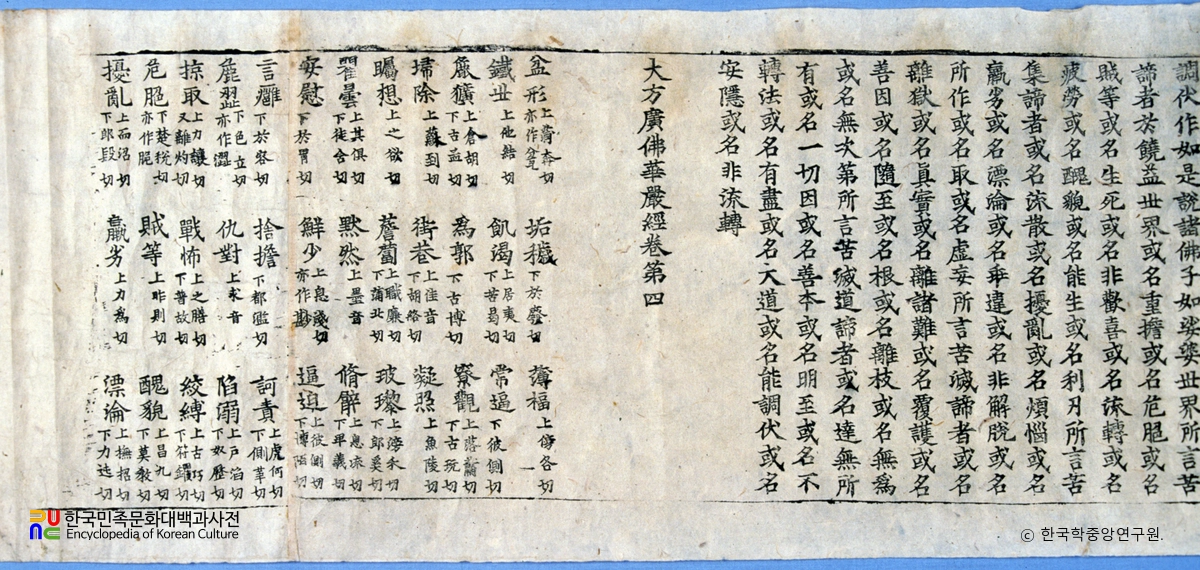 調伏作如是說諸佛子如娑婆世界所言苦
諦者於饒益世界或名重擔或名危脆或名
賊等或名生死或名非歡喜或名流轉或名
疲勞或名醜貌或名能生或名利刃所言苦
集諦者或名流散或名擾亂或名煩惱或名
羸劣或名漂淪或名乖違或名非解脫或名
所作或名取或名虛妄所言苦滅諦者或名
離獄或名真實或名離諸難或名覆護或名
善因或名隨至或名根或名離枝或名無為
或名無次第所言苦滅道諦者或名達無所
有或名一切因或名善本或名明至或名不
轉法或名有盡或名大道或名能調伏或名
安隱或名非流轉
大方廣佛華嚴經卷第四
盆形 上蒲奔切亦作瓫 垢穢 下於癈切 薄福 上傍各切
鐵丗 上他結切 飢渴 上居夷切下苦曷切 常逼 下彼側切
麁獷 上倉胡切下古孟切 為郭 下古博切 寮觀 上落蕭切下古玩切
埽除 上蘇到切 街巷 上佳音下胡絳切 凝照 上魚陵切
矚想 上之欲切 薝蔔 上職廉切下蒲北切 玻瓈 上滂禾切下郎奚切
瞿曇 上其俱切下徒含切 黙然 上墨音 脩臂 上息流切下卑義切
安慰 下於胃切 鮮少 上息淺切亦作尠 逼迫 上彼側切下博陌切
言癰 下於容切 擔 下都濫切 訶責 上虎何切下側革切
麁澀 下色立切亦作澁 仇對 上求音 陷溺 上戶滔切下奴歷切
掠取 上力讓切又離灼切 戰怖 上之膳切下普故切 絞縛 上古巧切下符钁切
危脃 下楚稅切亦作脆 賊等 上昨則切 醜貌 上昌九切下莫教切
擾亂 上而沼切下郎段切 羸劣 上力為切 漂淪 上撫招切下力迍切
한국민족문화대백과사전
Encyclopedia of Korean Culture
ⓒ 한국학중앙연구원.